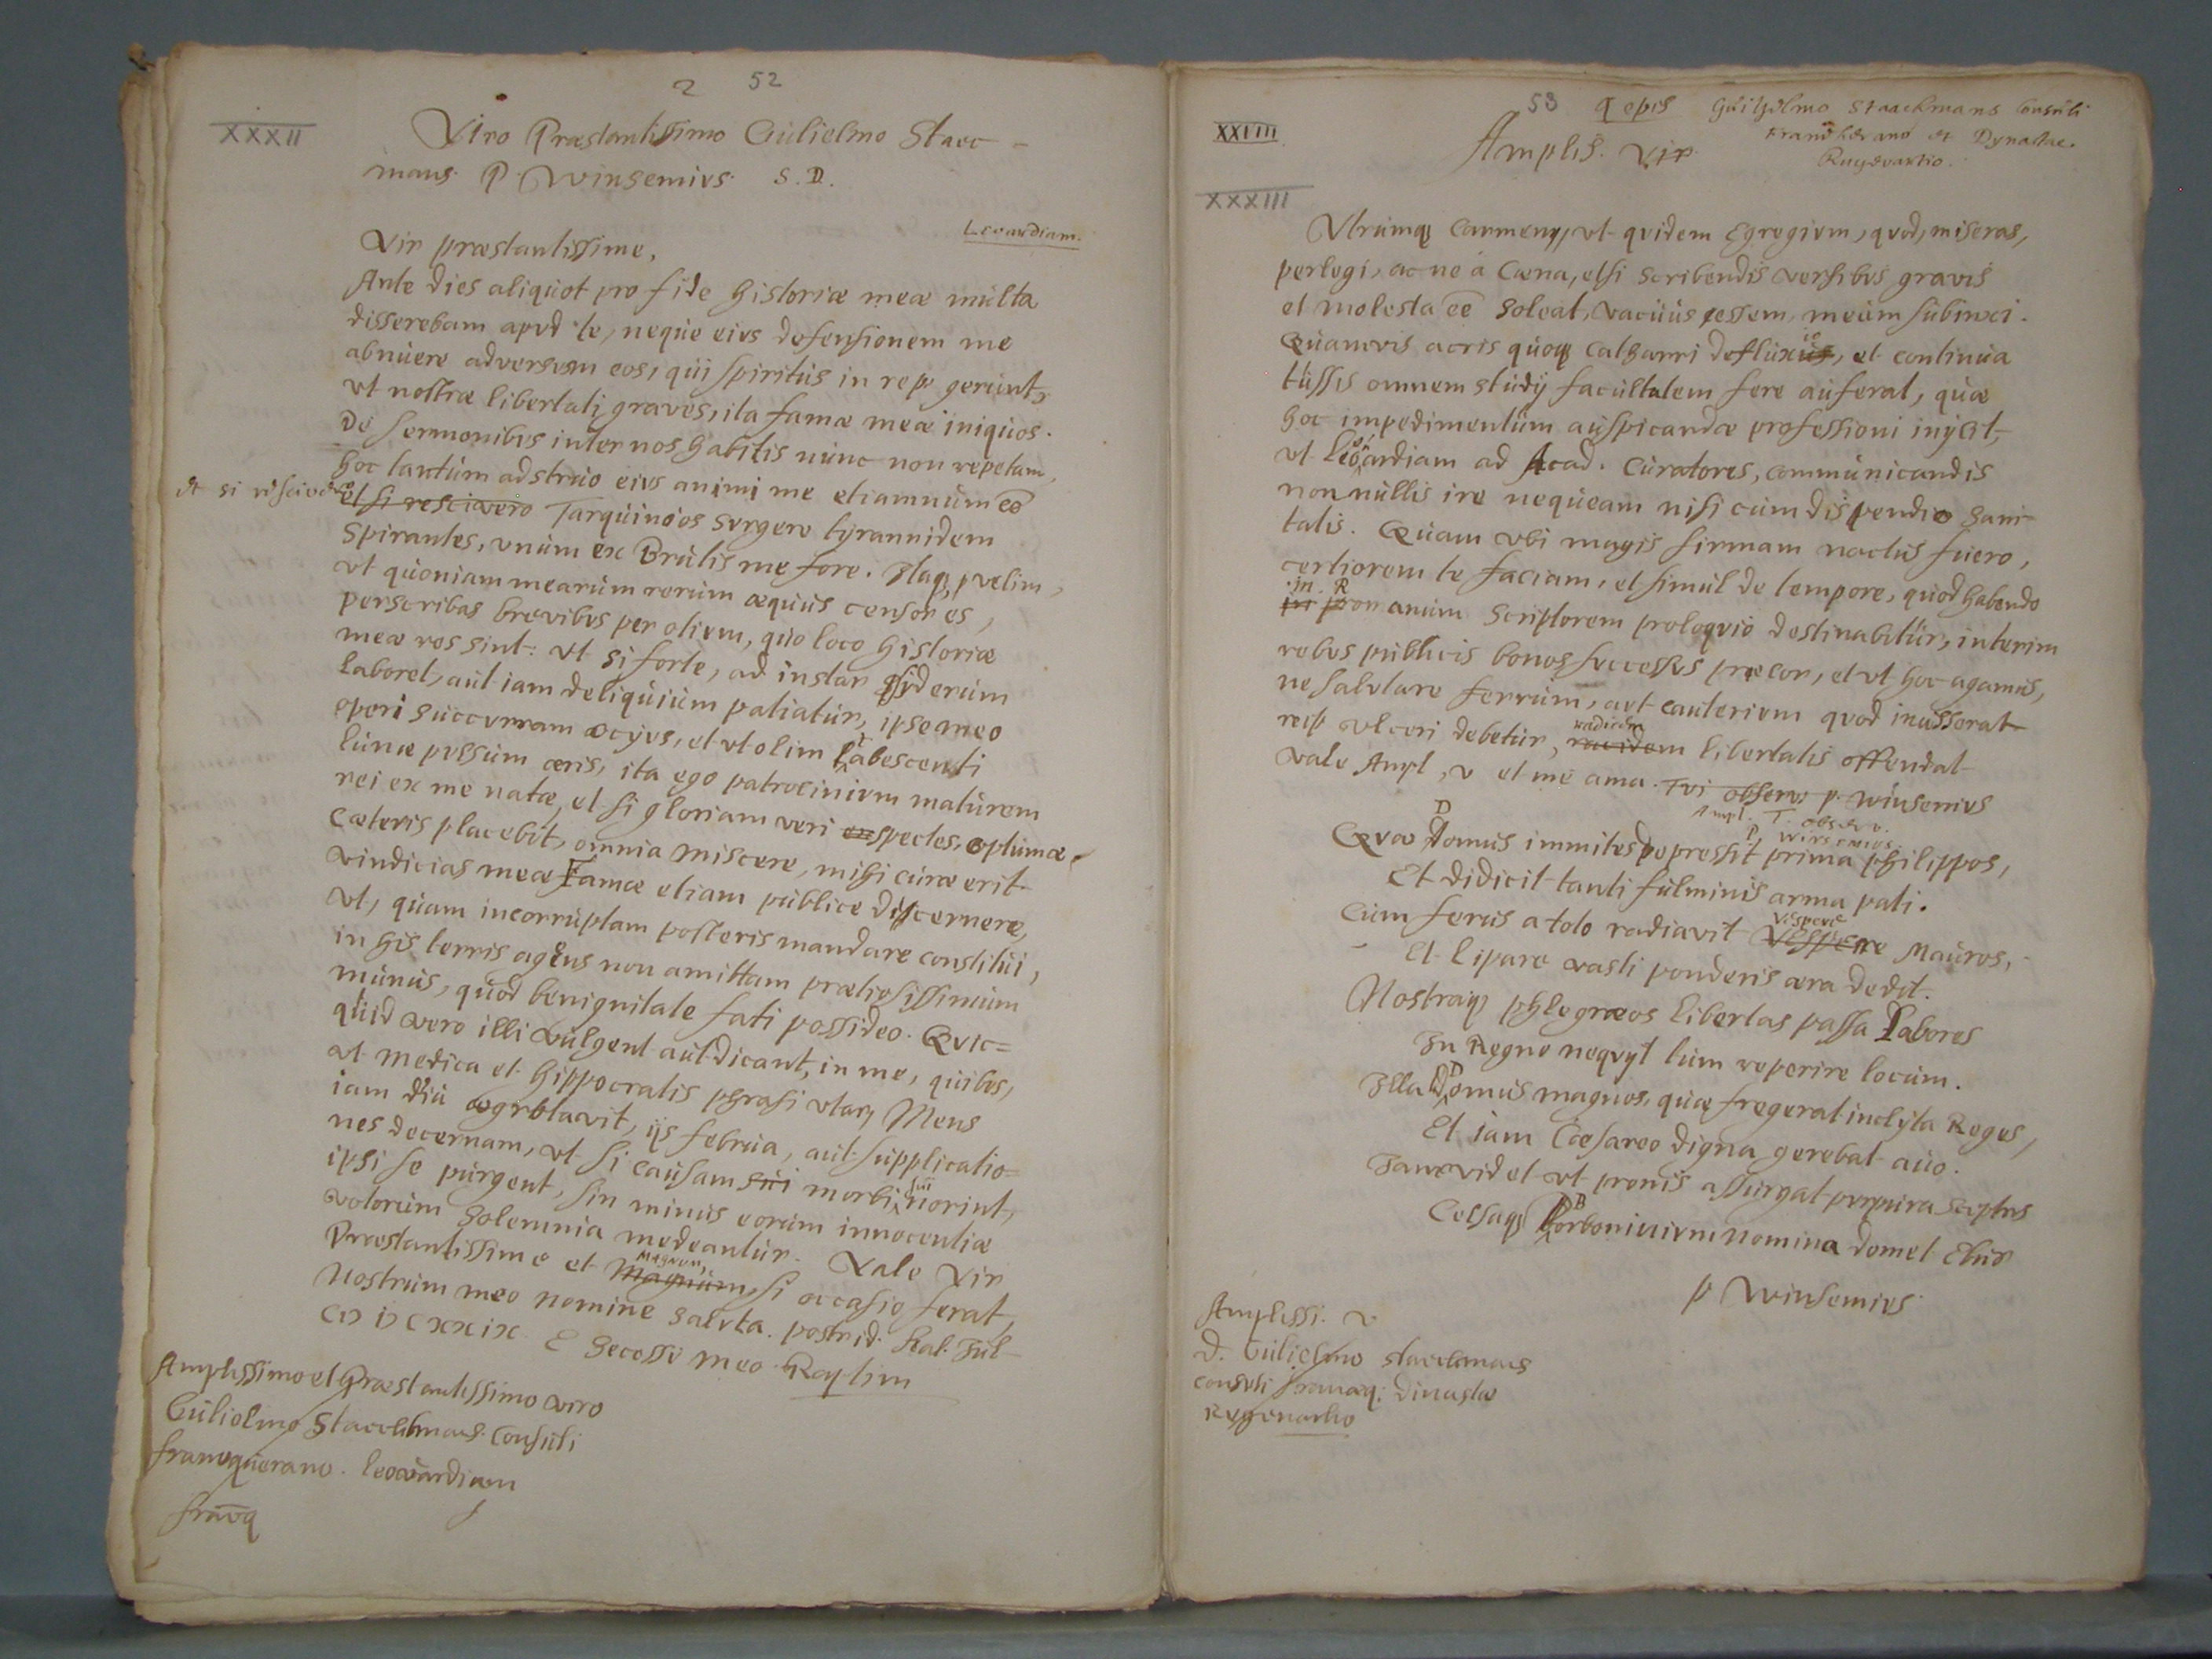 2 52
XXXII
Viro Præstantissimo Gulielmo Staec-
mans P. Winsemivs. S. D.
Leovardiam.
Vir præstantissime,
Ante dies aliquot pro fide historiæ meæ multa
disserebam apvd te, neque eivs defensionem me
abnuere adversvm eos, qui spiritus in rep. gerunt,
vt nostræ libertati graves, ita famæ meæ iniquos.
De sermonibvs inter nos habitis nunc non repetam,
hoc tantum adstruo eivs animi me etiamnum eē
et si rescivero
et si rescivero Tarquinios svrgere tyrannidem
spirantes, vnum ex Brutis me fore. Itaq, velim,
vt quoniam mearum rerum æquus censor es,
perscribas brevibvs per otivm, quo loco historiæ
meæ res sint: vt si forte, ad instar siderum
laboret, aut iam deliquium patiatur, ipse meo
operi succvrram ocyvs, et vt olim tabescenti
lunæ pvlsum æris, ita ego patrocinivm maturem
rei ex me natæ, et si gloriam veri exspectes, optumæ
cæteris placebit, omnia miscere, mihi curæ erit
vindicias meæ Famæ etiam publice discernere,
vt, quam incorruptam posteris mandare constitui,
in his terris agens non amittam prætiosissimum
munus, quod benignitate fati possideo. Qvic=
quid vero illi vulgent aut dicant, in me, quibvs,
vt medica et Hippocratis phrasi vtar, Mens
iam diu ægrotavit, ijs februa, aut supplicatio=
nes decernam, vt si causam sui morbi sui norint,
ipsi se purgent, sin minus eorum innocentiæ
votorum solemnia medeantur. Vale Vir
Præstantissime et Magnum
Magnum, si occasio ferat,
nostrum meo nomine salvta. postrid. Kal. Jul.
CIƆ IƆ CXXIX. E Secessu meo Raylim
Amplissimo et Præstantissimo viro
Gulielmo Staeckmans Consuli
franequerano. leovardiam
franq
53 q epis Guilielmo Staackmans Consuli
Franekerano et Dynastae.
Ruyevartio.
XXVIII
Amplis. Vir
XXXIII
Vtrumq carmen, vt quidem Egregivm, qvod, miseras,
perlegi, ac ne à Cæna, etsi scribendis versibvs gravis
et molesta eē soleat, vacuus essem, meum subinxi.
Quamvis acris quoq catharri defluxus, et continua
tussis omnem studij facultatem fere auferat, quæ
hoc impedimentum auspicandæ professioni inijcit,
vt leovardiam ad Acad. Curatores, communicandis
non nullis ire nequeam nisi cum dispendio sani-
tatis. Quam vbi magis firmam nactus fuero,
certiorem te faciam, et simul de tempore, quod habendo
in R
in romanum scriptorem proloqvio destinabitur, interim
rebvs publicis bonos svccessvs præcor, et vt hoc agamus,
ne salvtare ferrum, avt cauterivm qvod inusserat
reip vlceri debetur, radicem
racidem libertatis offendat
vale Ampl, v et me ama. Tvi observ: p. winsemivs
Ampl. T. observ.
P. Winsemivs.
Qvæ Domus immites depressit prima philippos,
Et didicit tanti fulminis arma pati.
Cum ferus a toto radiavit vespere
vespere Mauros,
Et lipare vasti ponderis æra dedit.
Nostraq phlegræos libertas passa labores
In Regno neqvyt tum reperire locum.
Illa Domus magnos, quæ fregerat inclyta Reges,
Et iam Cæsareo digna gerebat avo.
Jamvidet vt pronis assurgat pvrpura sceptris
Celsaq Borbonivivm nomina domet Ebur
p Winsemivs
Amplissi. v.
D. Gulielmo Staeckmans
consvli franeq: dinastæ
Regenartio